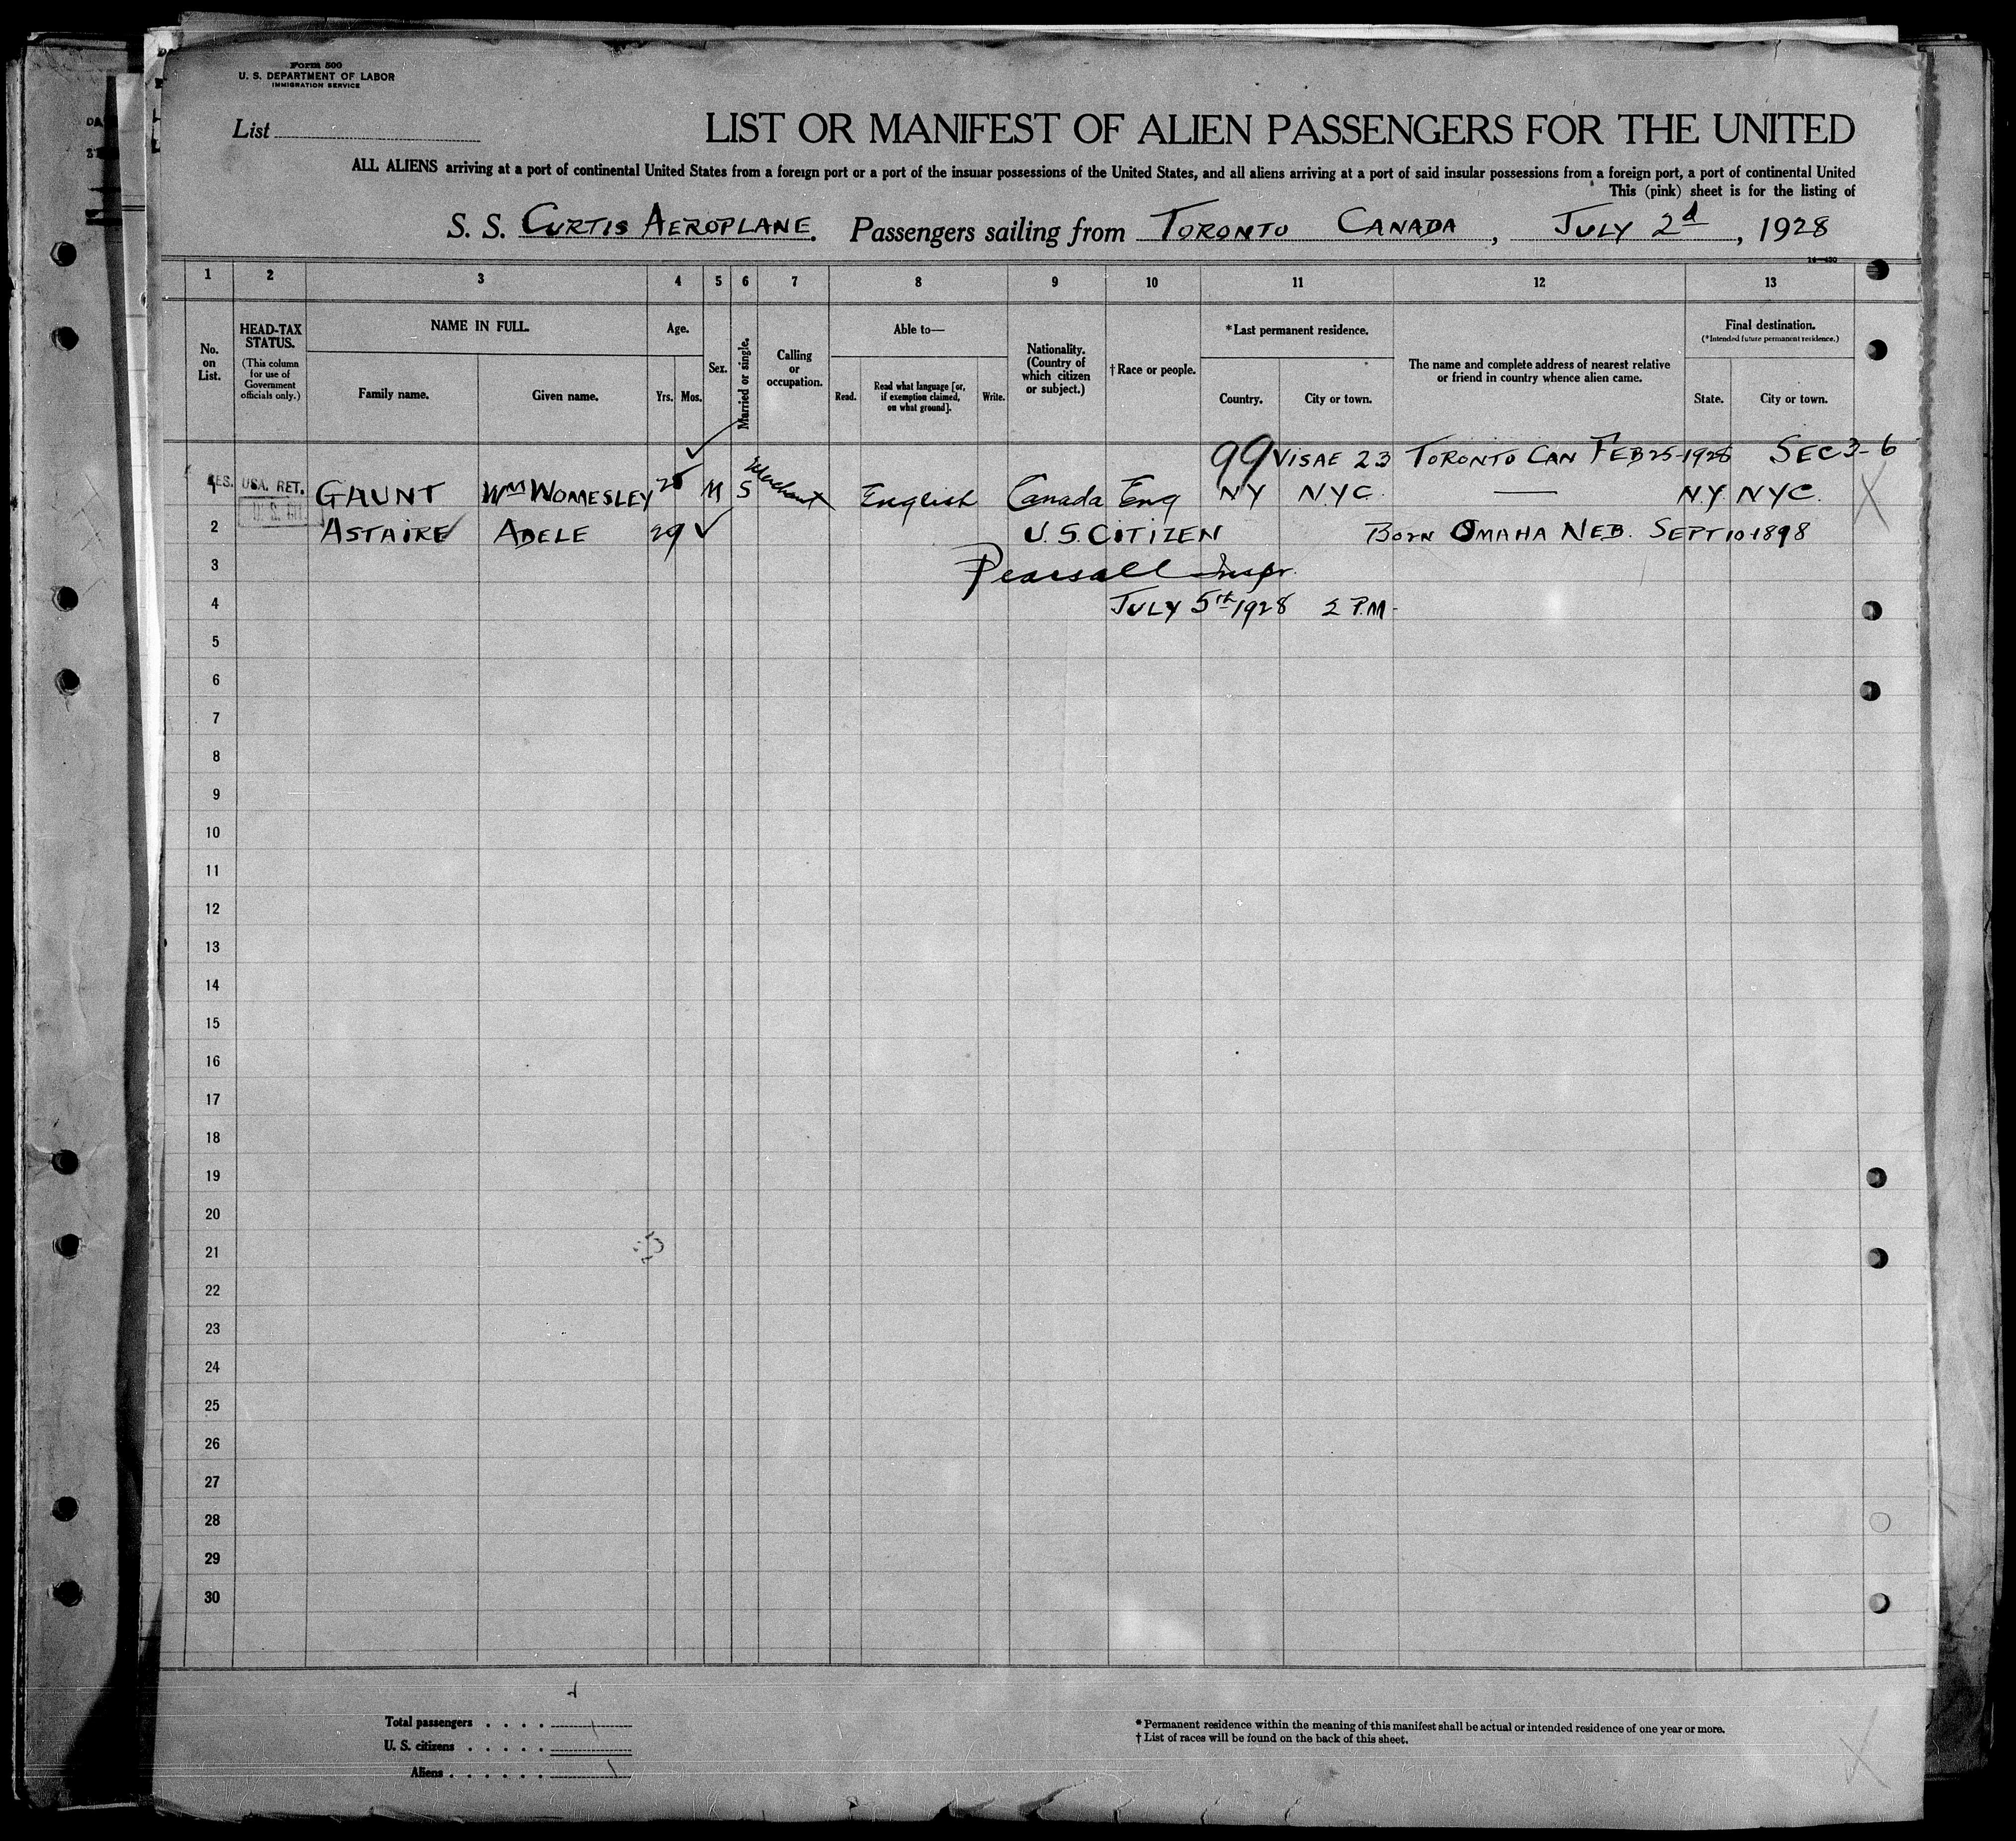 Form 500
U. S. DEPARTMENT OF LABOR
IMMIGRATION SERVICE
List
LIST OR MANIFEST OF ALIEN PASSENGERS FOR THE UNITED
ALL ALIENS arriving at a port of continental United States from a foreign port or a port of the insular possessions of the United States, and all aliens arriving at a port of said insular possessions from a foreign port, a port of continental United
This (pink) sheet is for the listing of
S. S. CURTIS AEROPLANE. Passengers sailing from TORONTO CANADA, JULY 2d, 1928
1 2 3 4 5 6 7 8 9 10 11 12 13
No. on List.
HEAD-TAX STATUS.
(This column for use of Government officials only.)
NAME IN FULL.
Family name. Given name.
Age.
Yrs. Mos.
Sex.
Married or single.
Calling or occupation.
Able to—
Read. Read what language [or, if exemption claimed, on what ground]. Write.
Nationality. (Country of which citizen or subject.)
† Race or people.
* Last permanent residence.
Country. City or town.
The name and complete address of nearest relative or friend in country whence alien came.
Final destination.
(* Intended future permanent residence.)
State. City or town.
99 VISAE 23 TORONTO CAN FEB 25-1928 SEC 3-6
1 USA. RET. GAUNT Wm WOMESLEY M S Merchant English Canada Eng NY NYC. — N.Y. NYC.
2 ASTAIRE ADELE 29 U.S. CITIZEN BORN OMAHA NEB. SEPT 10-1898
3 Pearsall Inspr.
4 JULY 5th 1928 2 P.M-
5
6
7
8
9
10
11
12
13
14
15
16
17
18
19
20
21
22
23
24
25
26
27
28
29
30
Total passengers
U. S. citizens
Aliens
* Permanent residence within the meaning of this manifest shall be actual or intended residence of one year or more.
† List of races will be found on the back of this sheet.